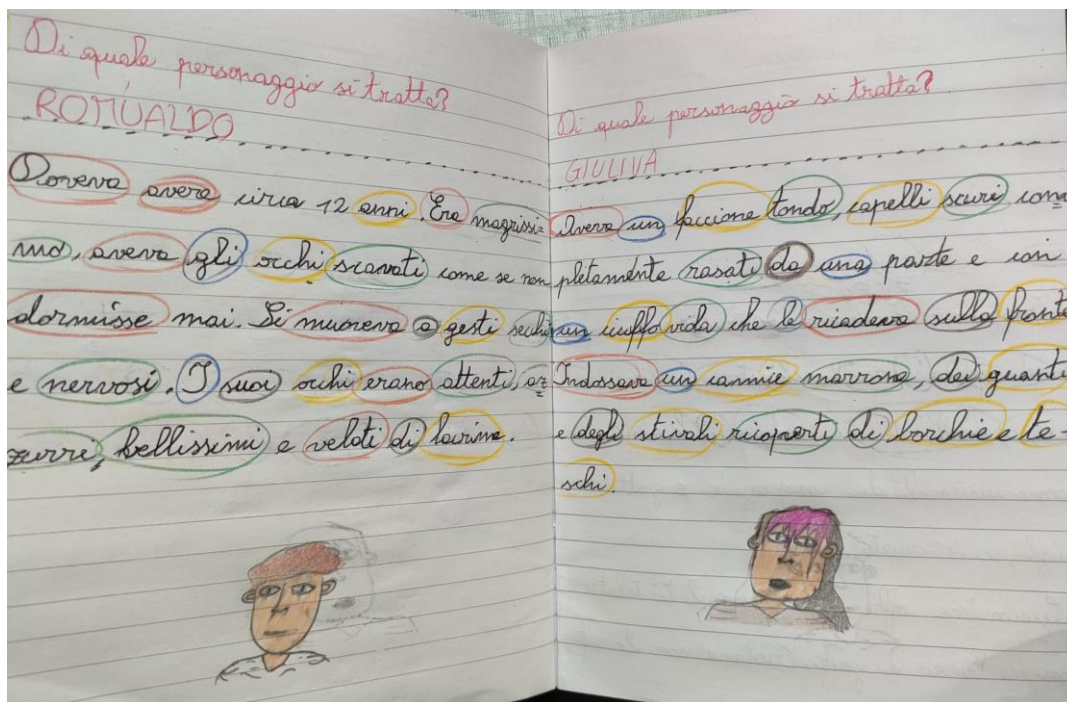 Di quale personaggio si tratta?
ROMUALDO
Doveva avere circa 12 anni. Era magrissi=
mo, aveva gli occhi scavati come se non
dormisse mai. Si muoveva a gesti secchi
e nervosi. I suoi occhi erano attenti, az=
zurri, bellissimi e velati di lacrime.
Di quale personaggio si tratta?
GIULIVA
Aveva un faccione tondo, capelli scuri com=
pletamente rasati da una parte e con
un ciuffo viola che le ricadeva sulla fronte
Indossava un camice marrone, dei guanti
e degli stivali ricoperti di borchie e te-
schi.